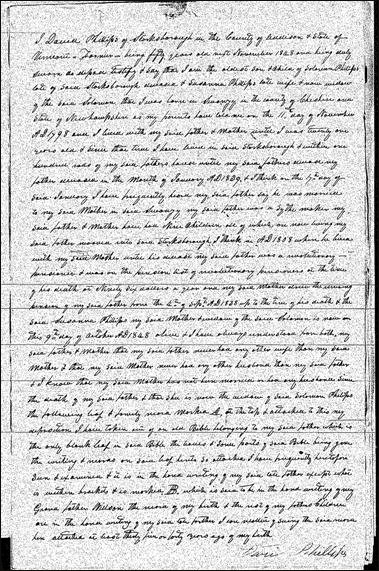 I David Phillips of Starksborough in the County of Addison & State of
Vermont a Farmer being fifty years old next November 1848 and being duly
sworn do depose testify & say that I am the oldest son & child of Solomon Phillips
late of said Starksborough deceased & Susanna Phillips late wife & now widow
of the said Solomon that I was born in Swanzey in the county of Cheshire and
State of Newhampshire as my parents have told me on the 11th day of November
AD 1798 and I lived with my said father & Mother until I was twenty one
years old & since that time I have lived in said Starksborough & within one
hundred rods of my said fathers house until my said fathers decease my
father deceased in the Month of January AD 1839 & I think on the day of
said January I have frequently heard my said father say he was married
to my said Mother in said Swanzey my said father was a by the
said father & Mother have had Nine Children all of which are now living my
said father moved into said Starksborough I think in AD 18 where he lived
with my said Mother until his decease my said father was a revolutionary
pensioner & was on the pension list of revolutionary pensioners at the time
of his death at Ninety six dollars a year and my said Mother drew the
pension of my said father from the 4th of Sept AD 1838 up to the time of his death & the
said Susanna Phillips my said Mother & widow of the said Solomon is now on
this 9th day of October AD 1848 alive & I have always understood from both my
said father & Mother that my said father never had any other wife than my said
Mother & that my said Mother never had any other husband than my said father
& I know that my said Mother has not been married or had any husband since
the death of my said father & that she is now the widow of said Solomon Phillips
the following leaf & family record Marked A. at the top & attached to this my
deposition I have taken out of an old Bible belonging to my said father which is
the only blank leaf in said Bible the covers & some parts of said Bible being gone
the writing & record on said leaf hereto attached I have frequently heretofore
seen & examined & it is in the hand writing of my said late father except what
is within brackets & is marked B. which is said to be in the hand writing of my
Grand father the record of my birth & the rest of my father Children
are in the hand writing of my said late father I can recollect of seeing the said record
here attached at least thirty five or forty years ago of my birth
David Phillips